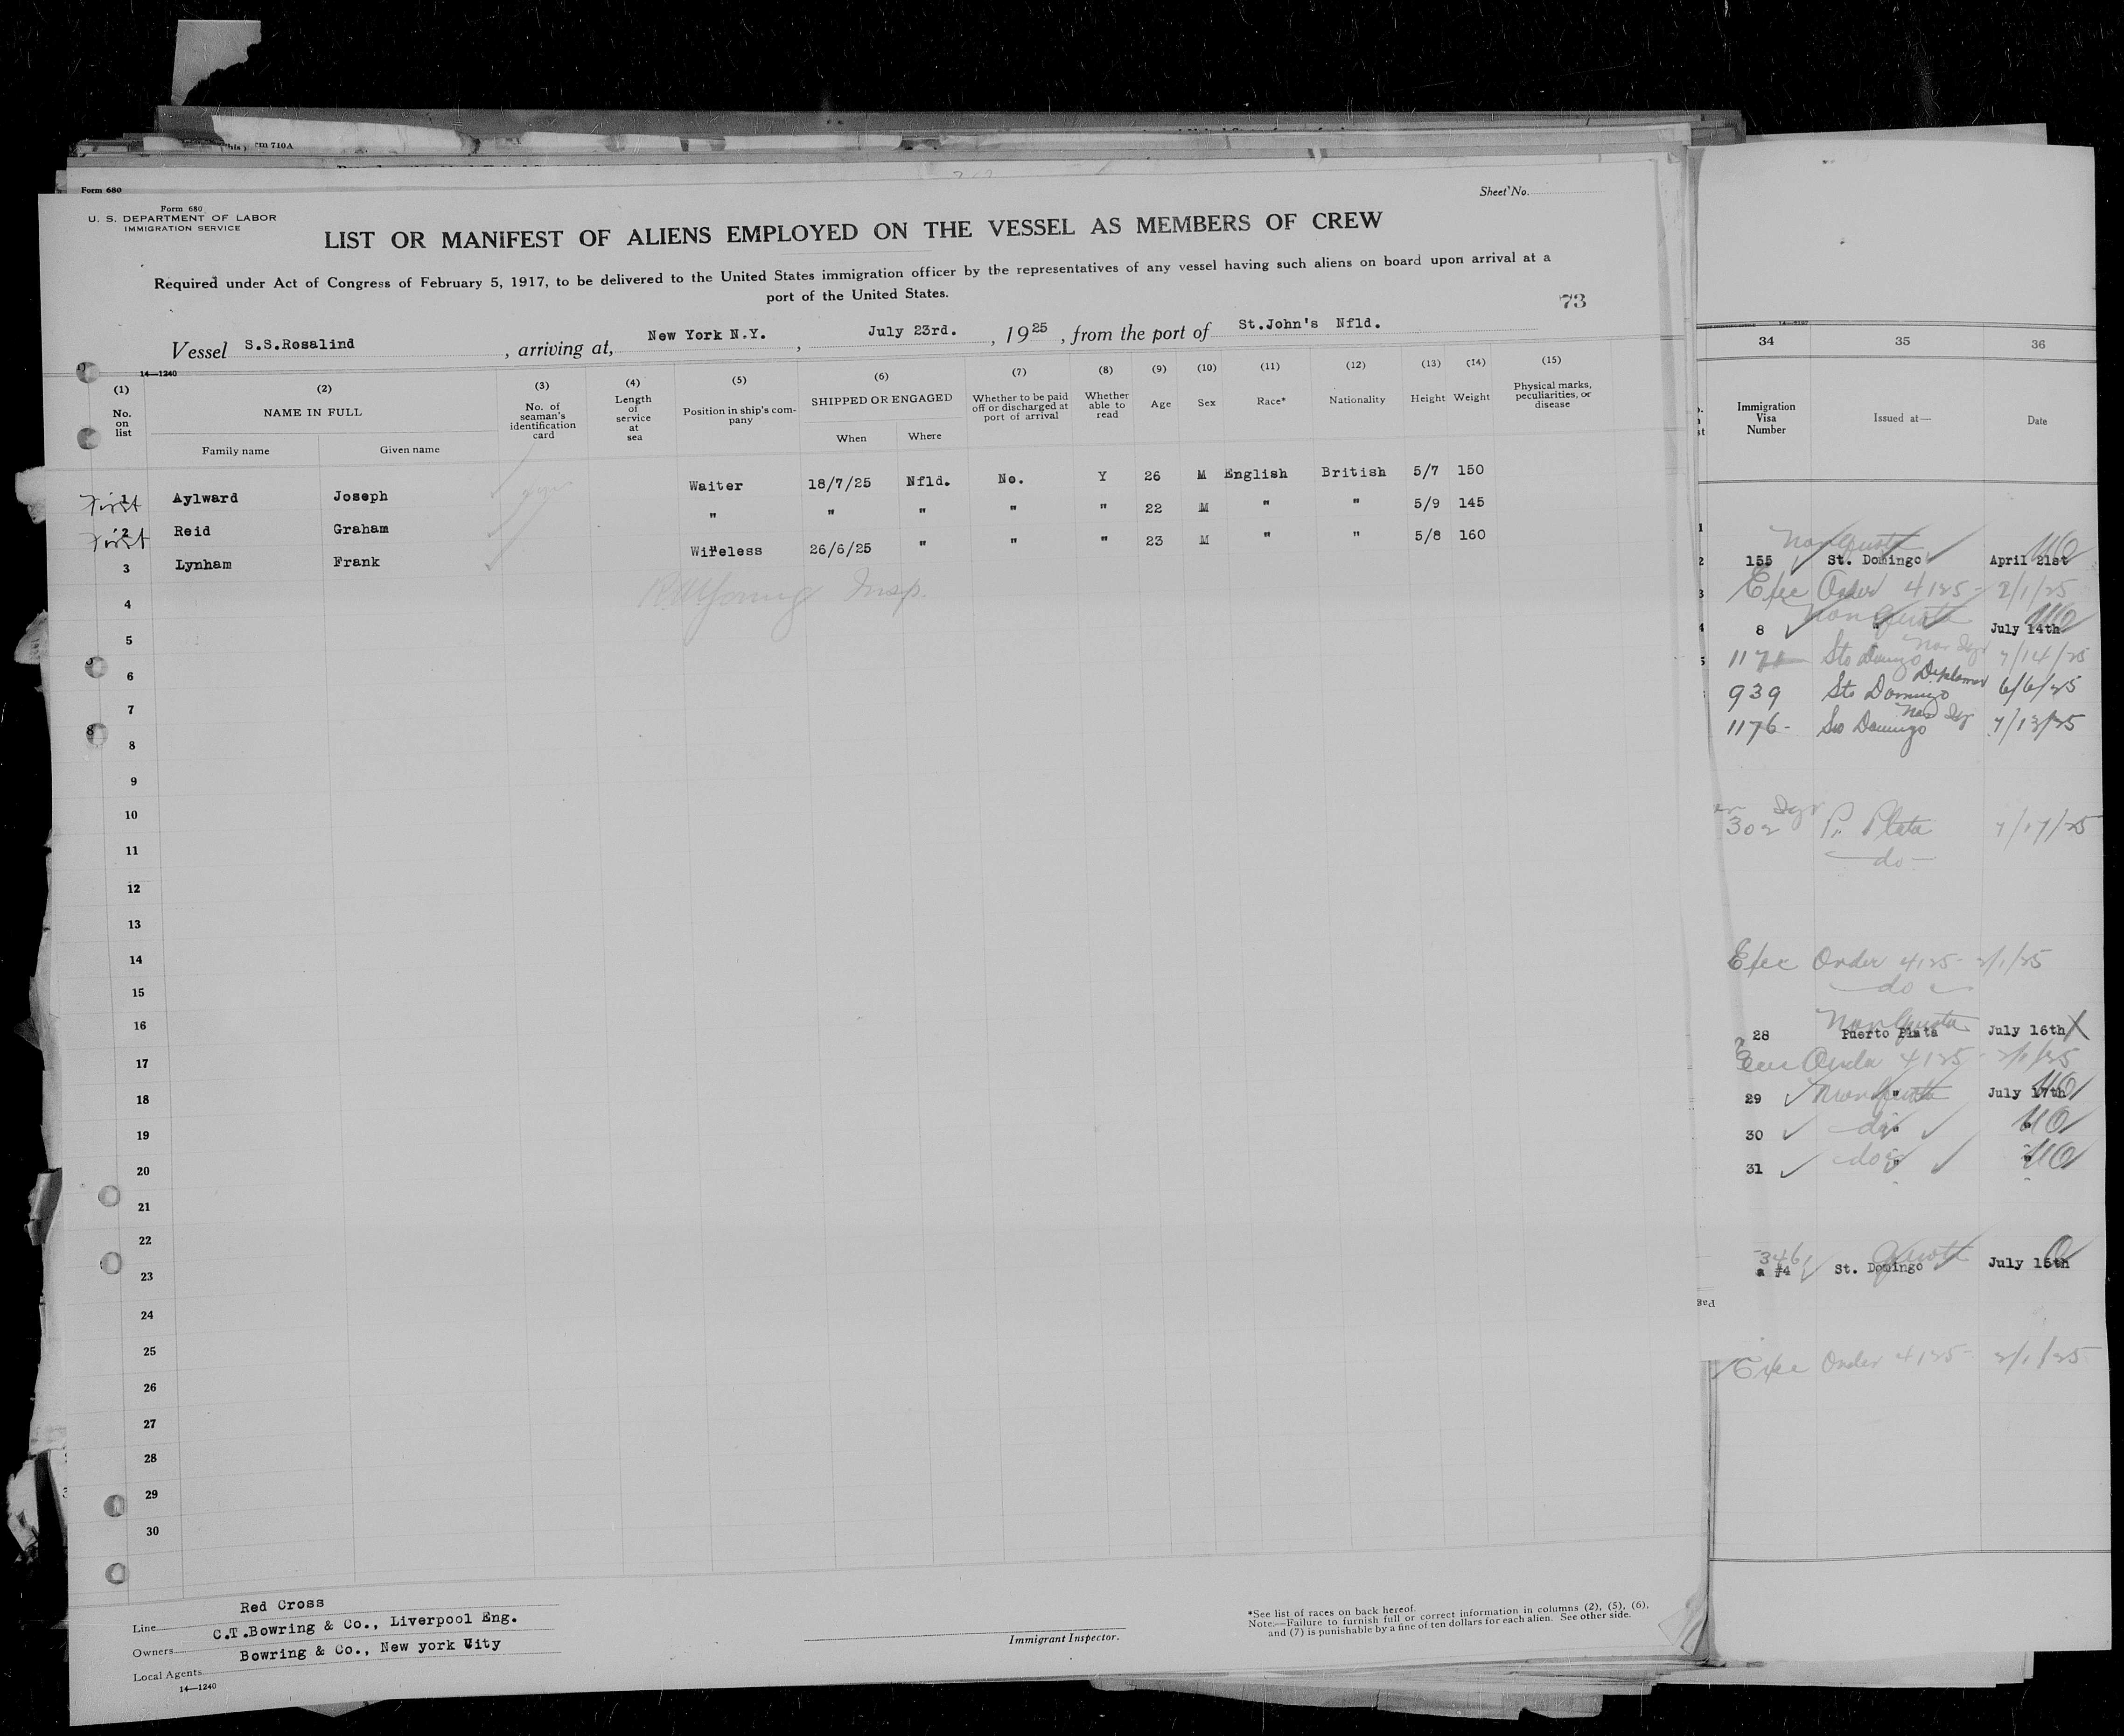 rm 710A
Form 680
Form 680
U. S. DEPARTMENT OF LABOR
IMMIGRATION SERVICE
Sheet No.
LIST OR MANIFEST OF ALIENS EMPLOYED ON THE VESSEL AS MEMBERS OF CREW
Required under Act of Congress of February 5, 1917, to be delivered to the United States immigration officer by the representatives of any vessel having such aliens on board upon arrival at a
port of the United States.
73
Vessel S.S.Rosalind , arriving at, New York N.Y. , July 23rd. , 1925 , from the port of St.John's Nfld.
14—1240
(1) (2) (3) (4) (5) (6) (7) (8) (9) (10) (11) (12) (13) (14) (15)
No. on list NAME IN FULL No. of seaman's identification card Length of service at sea Position in ship's company SHIPPED OR ENGAGED Whether to be paid off or discharged at port of arrival Whether able to read Age Sex Race* Nationality Height Weight Physical marks, peculiarities, or disease
Family name Given name When Where
First 1 Aylward Joseph Waiter 18/7/25 Nfld. No. Y 26 M English British 5/7 150
First 2 Reid Graham " " " " " 22 M " " 5/9 145
3 Lynham Frank Wireless 26/6/25 " " " 23 M " " 5/8 160
4
Young Insp.
5
6
7
8
9
10
11
12
13
14
15
16
17
18
19
20
21
22
23
24
25
26
27
28
29
30
Line Red Cross
Owners C.T.Bowring & Co., Liverpool Eng.
Local Agents Bowring & Co., New york City
14—1240
Immigrant Inspector.
*See list of races on back hereof.
Note.—Failure to furnish full or correct information in columns (2), (5), (6),
and (7) is punishable by a fine of ten dollars for each alien. See other side.
34 35 36
Immigration Visa Number Issued at— Date
Nonquota
155 St. Domingo April 21st
Exec Order 4125- 2/1/25
Nonquota
8 " July 14th
1171 Sto Domingo 7/14/25
Diplomat
939 Sto Domingo 6/6/25
1176- Sto Domingo 7/13/25
302 P. Plata 7/17/25
do
Exec Order 4125- 2/1/25
do
Nonquota
28 Puerto Plata July 16th
Exec Order 4125- 2/1/25
29 Nonquota " July 17th
30 do " "
31 do " "
346 Quota
a #4 St. Domingo July 15th
Pag
Exec Order 4125- 2/1/25